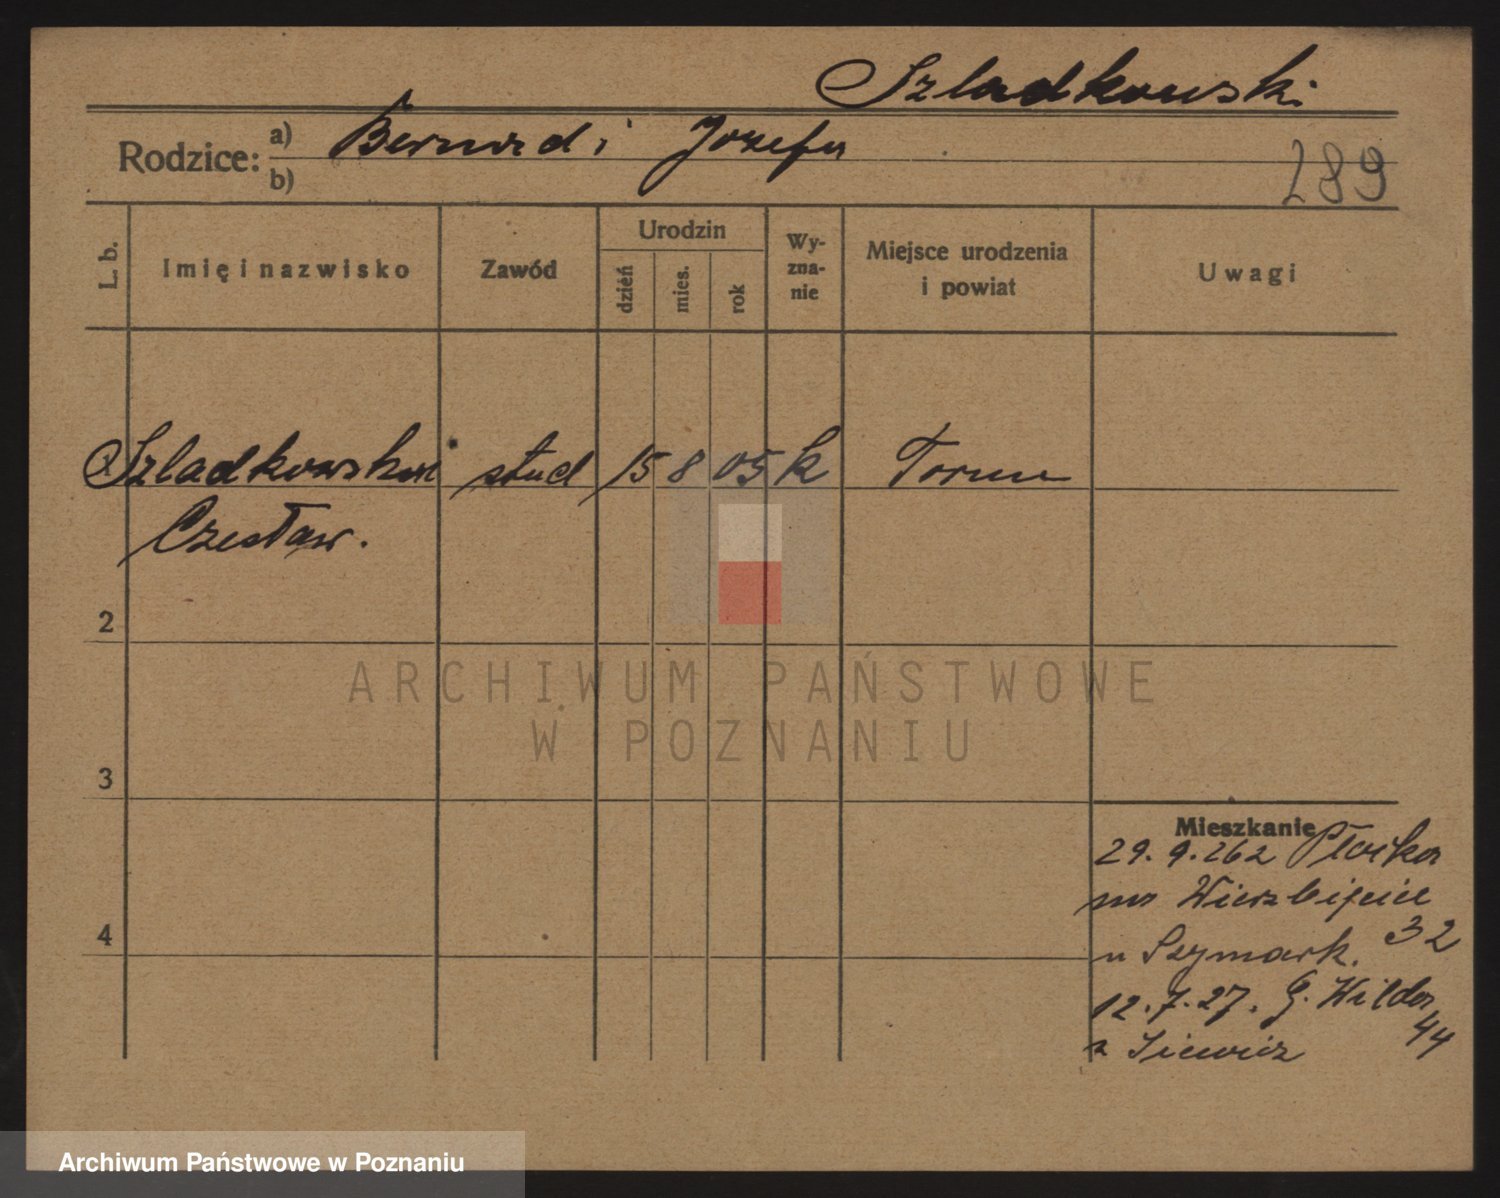 Szladkowski
Rodzice: a) Bernard i Józefa
b)
289
L. b.
Imię i nazwisko
Zawód
Urodzin
dzień
mies.
rok
Wy-
zna-
nie
Miejsce urodzenia
i powiat
Uwagi
Szladkowski stud 15 8 05 k Toruń
Czesław.
2
ARCHIWUM PAŃSTWOWE
W POZNANIU
3
Mieszkanie
29. 9.
na Wierzbięcice
4
32
u Szymark.
12.7.27. G. Wilda
44
Archiwum Państwowe w Poznaniu